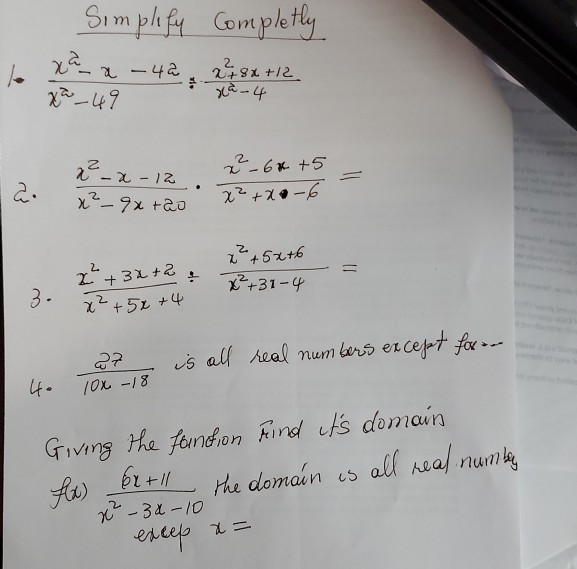 Simplify Completly
1. x²-x-42/x²-49 ÷ x²+8x+12/x²-4
2. x²-x-12/x²-9x+20 · x²-6x+5/x²+x-6 =
3. x²+3x+2/x²+5x+4 ÷ x²+5x+6/x²+3x-4 =
4. 27/10x-18 is all real numbers except for...
Giving the function Find it's domain
f(x) 6x+11/x²-3x-10 the domain is all real number
excep x =